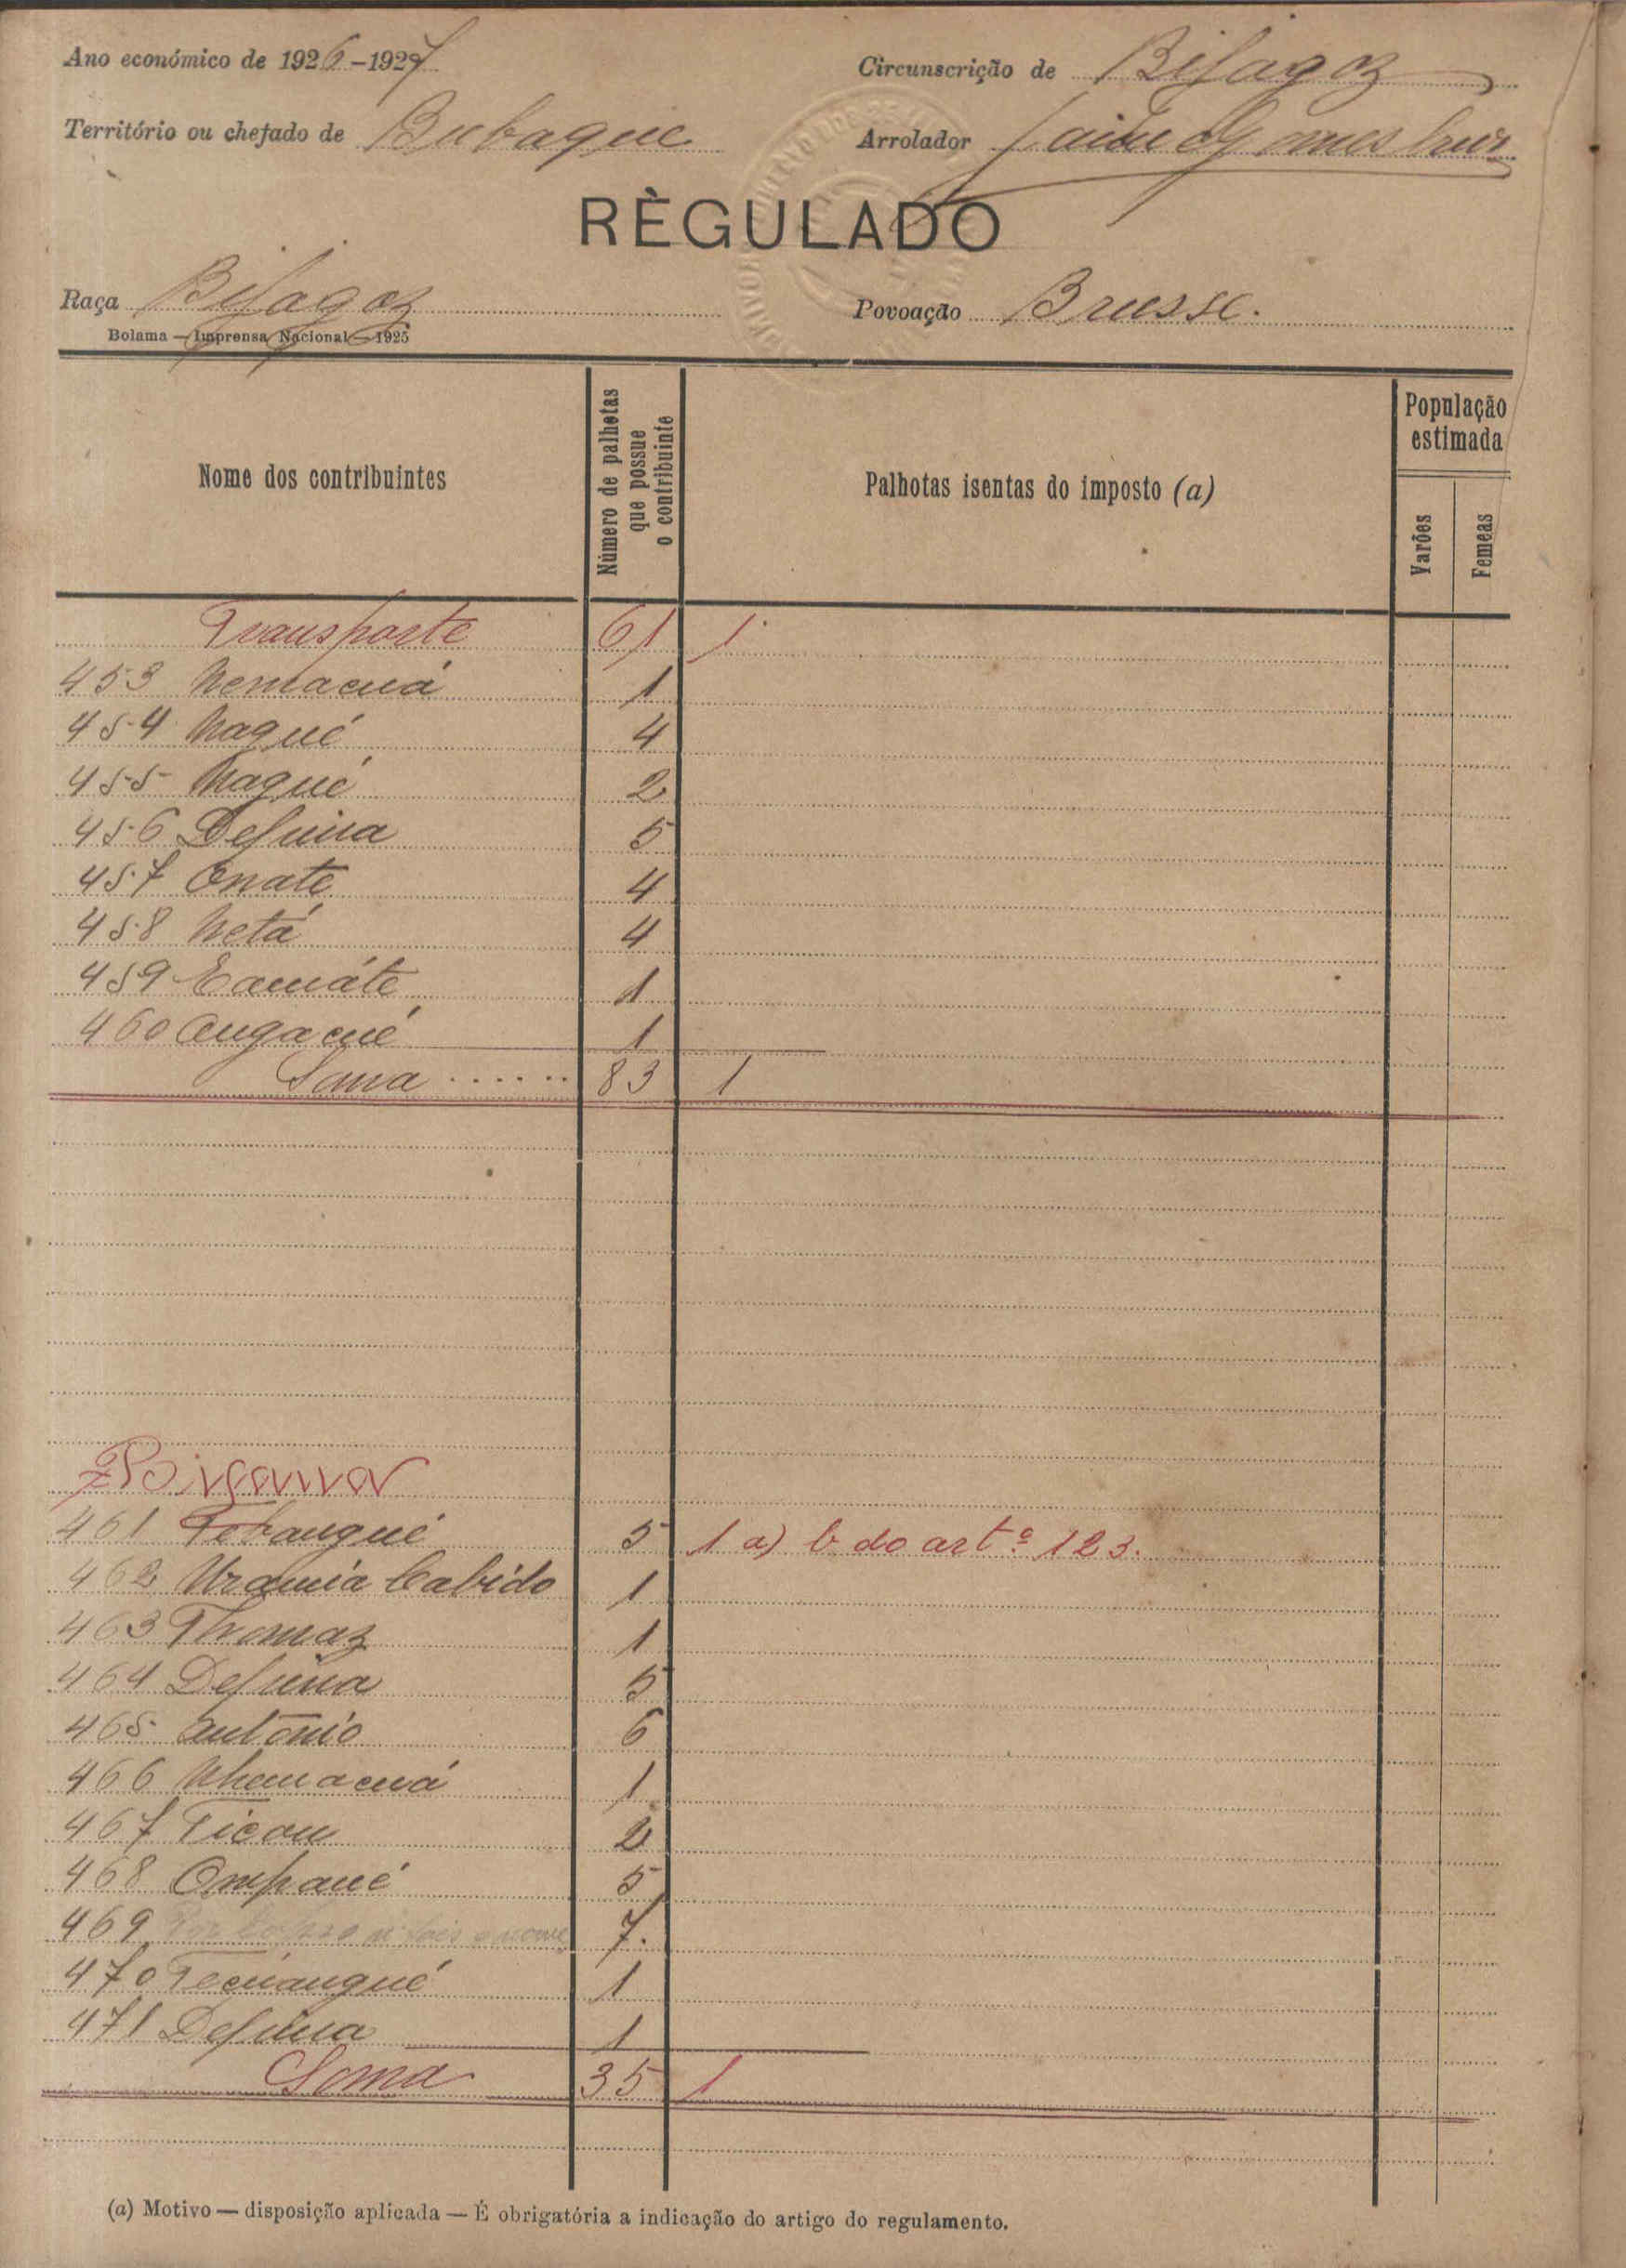 Ano económico de 1926-1927
Circunscrição de Bijagoz
Território ou chefado de Bubaque
Arrolador Jaime Gomes
RÈGULADO
Raça Bijagoz
Povoação Brusse.
Bolama — Imprensa Nacional — 1925
Nome dos contribuintes
Número de palhotas que possue o contribuinte
Palhotas isentas do imposto (a)
População estimada
Varões
Femeas
Transporte 61 1
453 Nemacuá 1
454 Naqué 4
455 Naqué 2
456 Defuina 5
457 Onate 4
458 Netá 4
459 Camáte 1
460 Augacué 1
Soma ...... 83 1
461 Tebangué 5 1 a) b do artº 123.
462 Uramia Cabido 1
463 Thomaz 1
464 Defuna 5
465 António 6
466 Nhemacuá 1
467 Ticou 2
468 Ompané 5
469 7.
470 Tecuangué 1
471 Defuna 1
Soma 35 1
(a) Motivo — disposição aplicada — É obrigatória a indicação do artigo do regulamento.